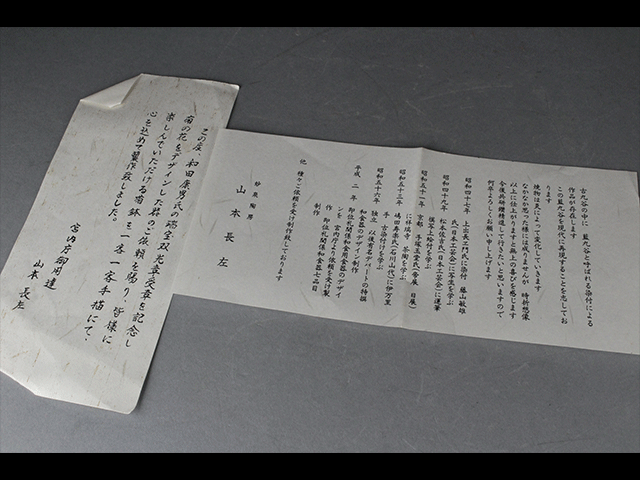 この度 和田康男氏の瑞宝双光章受章を記念し
菊の花をデザインした昇のご依頼を賜り、皆様に
楽しんでいただける 一客一客手描にて、
心を込めて製作致しました。
宮内庁御用達
山本 長左
古九谷の中に 藍九谷と呼ばれる染付による
作品が存在します
この藍九谷を現代に再現することを志してお
ります
焼物は炎によって変化していきます
なかなか思った様には成りませんが 時折想像
以上に仕上がりますと無上の喜びを感じます
今後尚研鑽精進して行きたいと思いますので
何卒よろしくお願い申し上げます
昭和四十七年 上出長工門氏に染付 藤山敏雄
氏(日本工芸会)に写生を学ぶ
昭和四十九年 松本佐吉氏(日本工芸会)に運筆
模写上絵付を学ぶ
昭和五十一年 京都 手塚玉堂氏(香展 日展)
に祥瑞手 茶陶を学ぶ
昭和五十三年 嶋田寿楽氏(石川山代)に伊万里
手 古染付けを学ぶ
昭和五十六年 独立 以後有名デパートの特撰
和食器のデザイン制作
平成二年 即位礼関係和食用食器のデザイ
ンを 宮内庁より依頼を受け製
作 即位礼関係和食器七品目
制作
他 種々ご依頼を受け制作致しております
妙泉陶房
山本長左